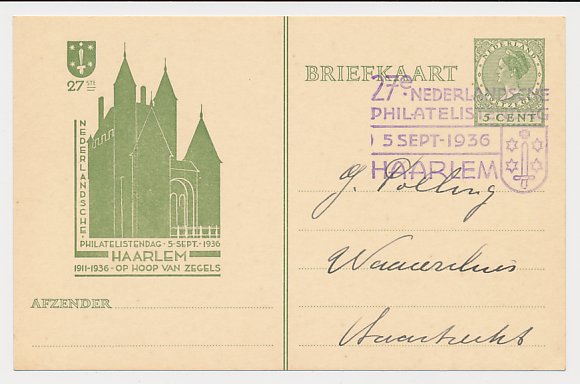 27STE
NEDERLANDSCHE
PHILATELISTENDAG · 5 · SEPT. · 1936
HAARLEM
1911-1936 - OP HOOP VAN ZEGELS
AFZENDER
BRIEFKAART
NEDERLAND
5 CENT
27e. NEDERLANDSCHE
PHILATELISTENDAG
5 SEPT-1936
HAARLEM
J. Polling